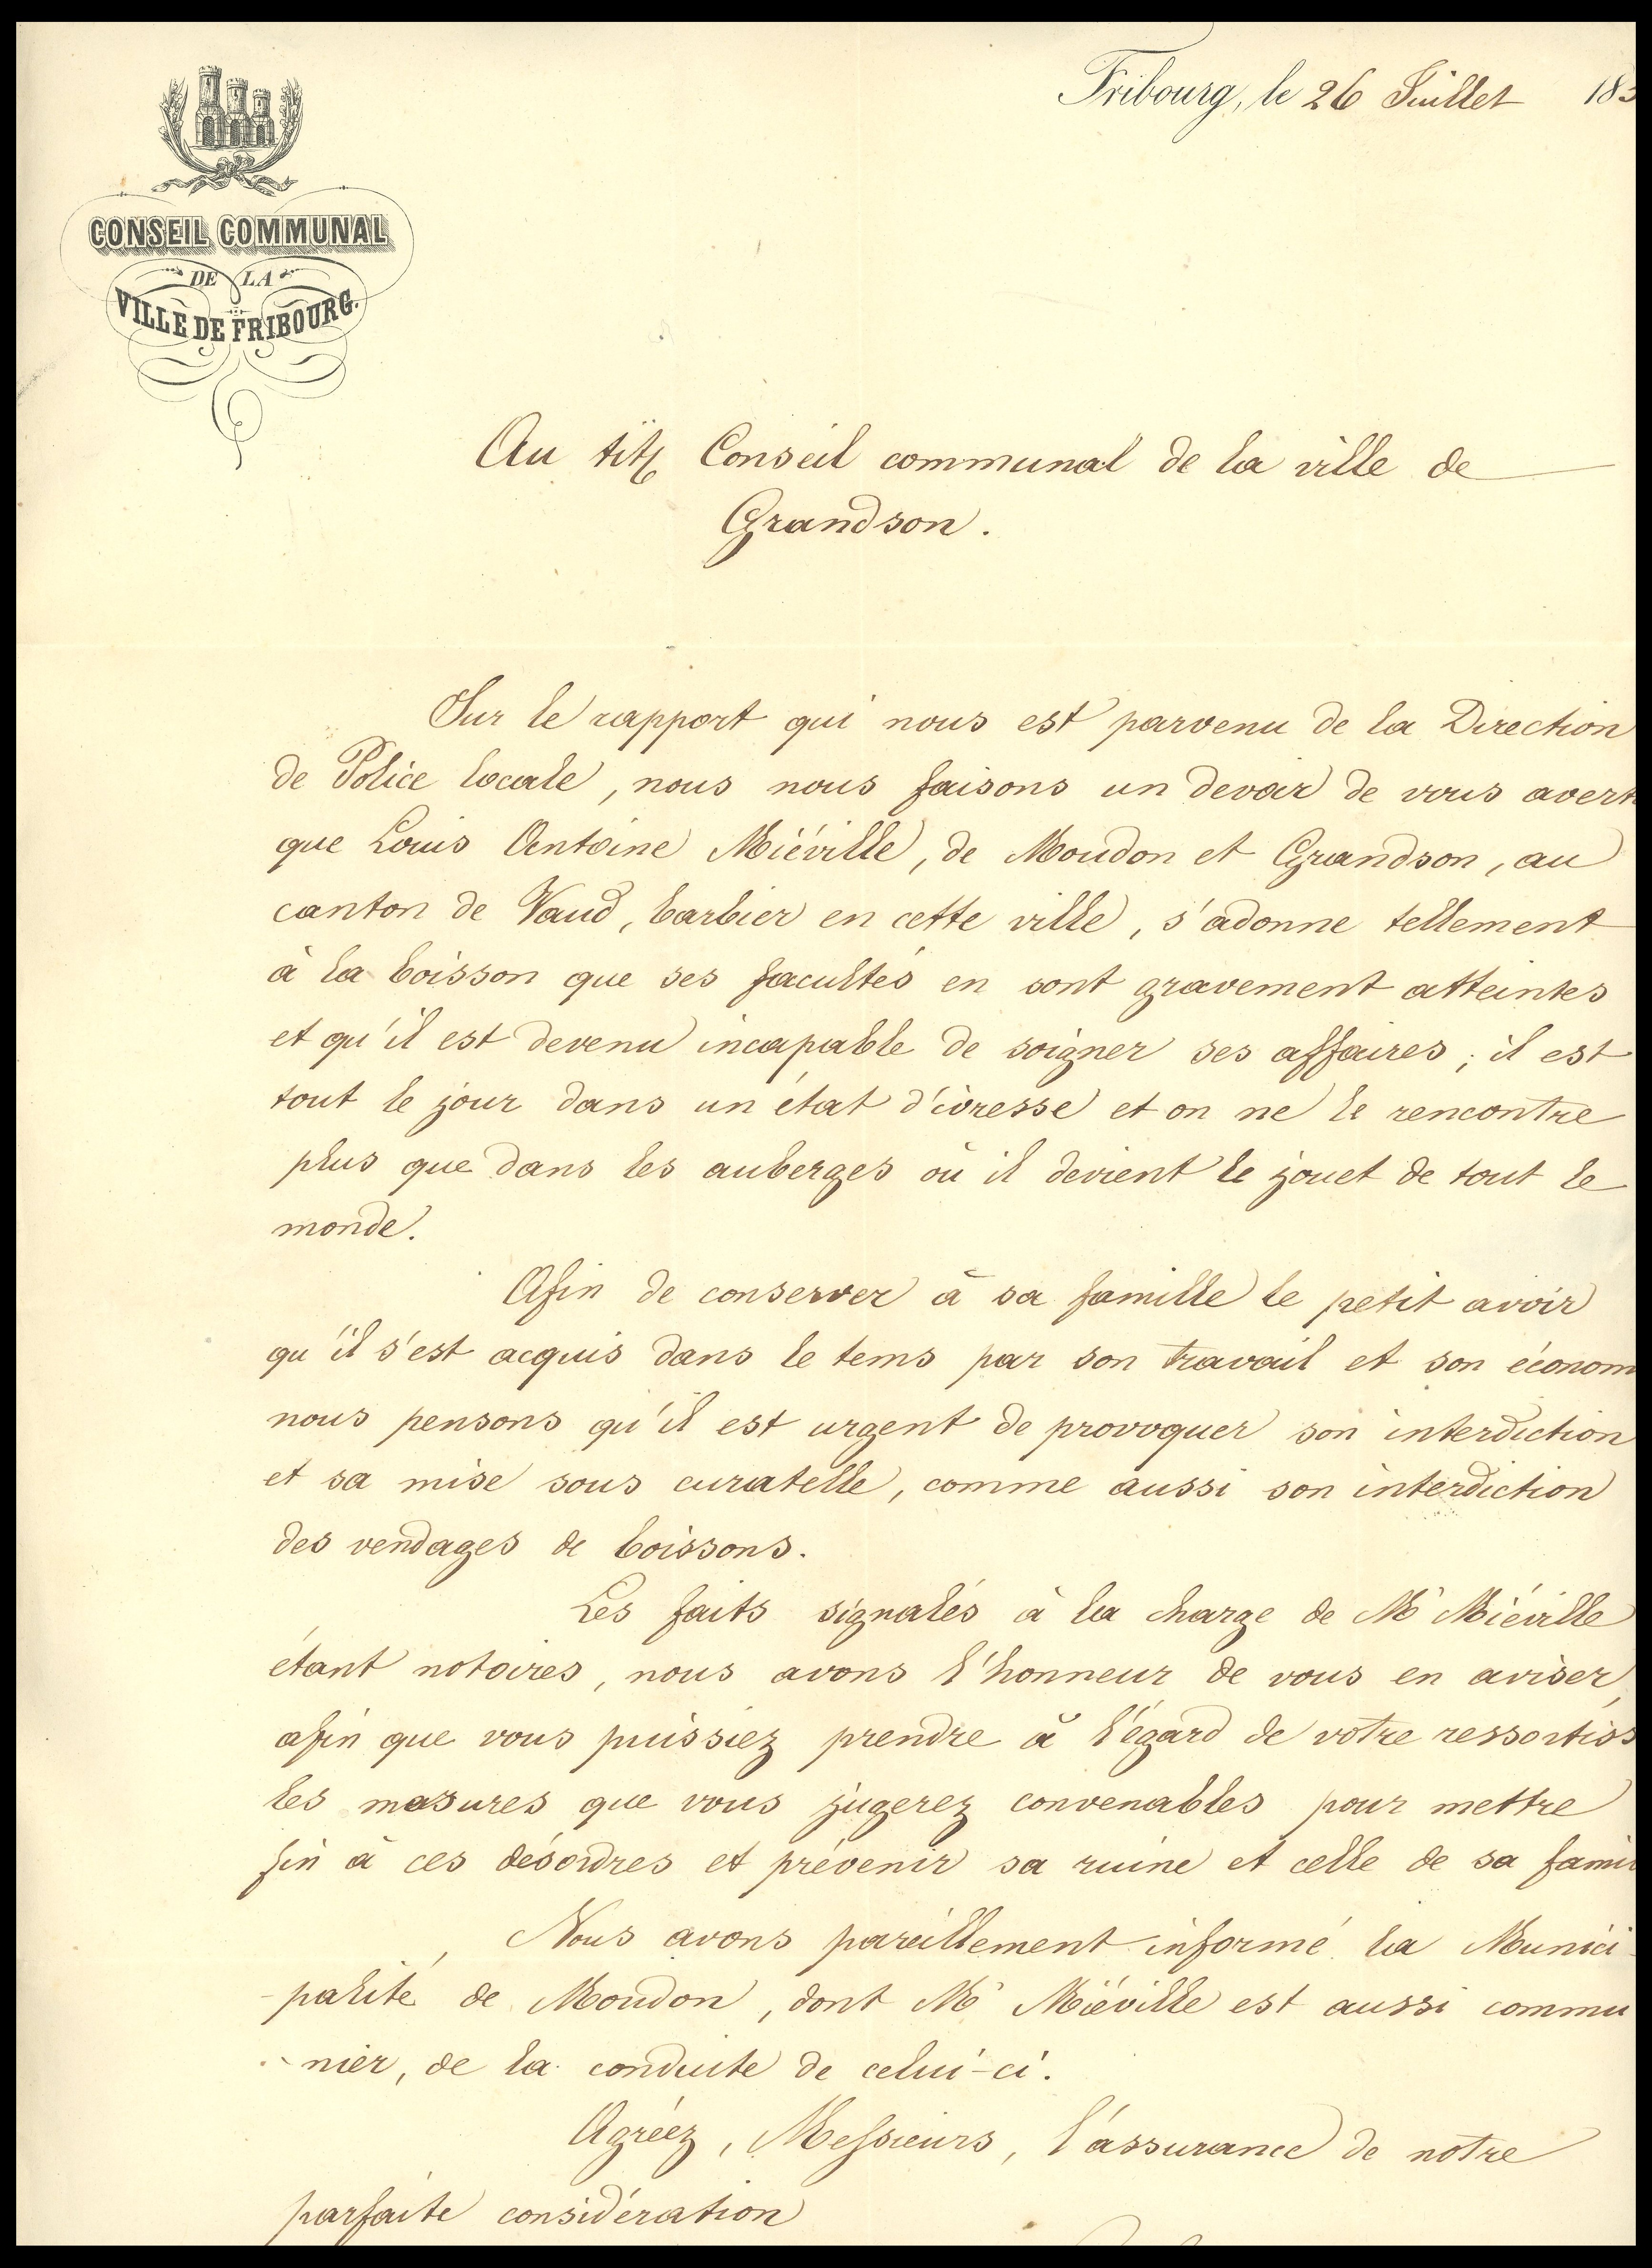 Fribourg, le 26 Juillet 18
CONSEIL COMMUNAL
DE LA
VILLE DE FRIBOURG.
Au tit. Conseil communal de la ville de
Grandson.
Sur le rapport qui nous est parvenu de la Direction
de Police locale, nous nous faisons un devoir de vous avert
que Louis Antoine Miéville, de Moudon et Grandson, au
canton de Vaud, barbier en cette ville, s'adonne tellement
à la boisson que ses facultés en sont gravement atteintes
et qu'il est devenu incapable de soigner ses affaires; il est
tout le jour dans un état d'ivresse et on ne le rencontre
plus que dans les auberges où il devient le jouet de tout le
monde.
Afin de conserver à sa famille le petit avoir
qu'il s'est acquis dans le tems par son travail et son économ
nous pensons qu'il est urgent de provoquer son interdiction
et sa mise sous curatelle, comme aussi son interdiction
des vendages de boissons.
Les faits signalés à la charge de Mr Miéville
étant notoires, nous avons l'honneur de vous en aviser,
afin que vous puissiez prendre à l'égard de votre ressortiss
les mesures que vous jugerez convenables pour mettre
fin à ces désordres et prévenir sa ruine et celle de sa fami
Nous avons pareillement informé la Munici-
-palité de Moudon, dont Mr Miéville est aussi commu
-nier, de la conduite de celui-ci.
Agréez, Messieurs, l'assurance de notre
parfaite considération